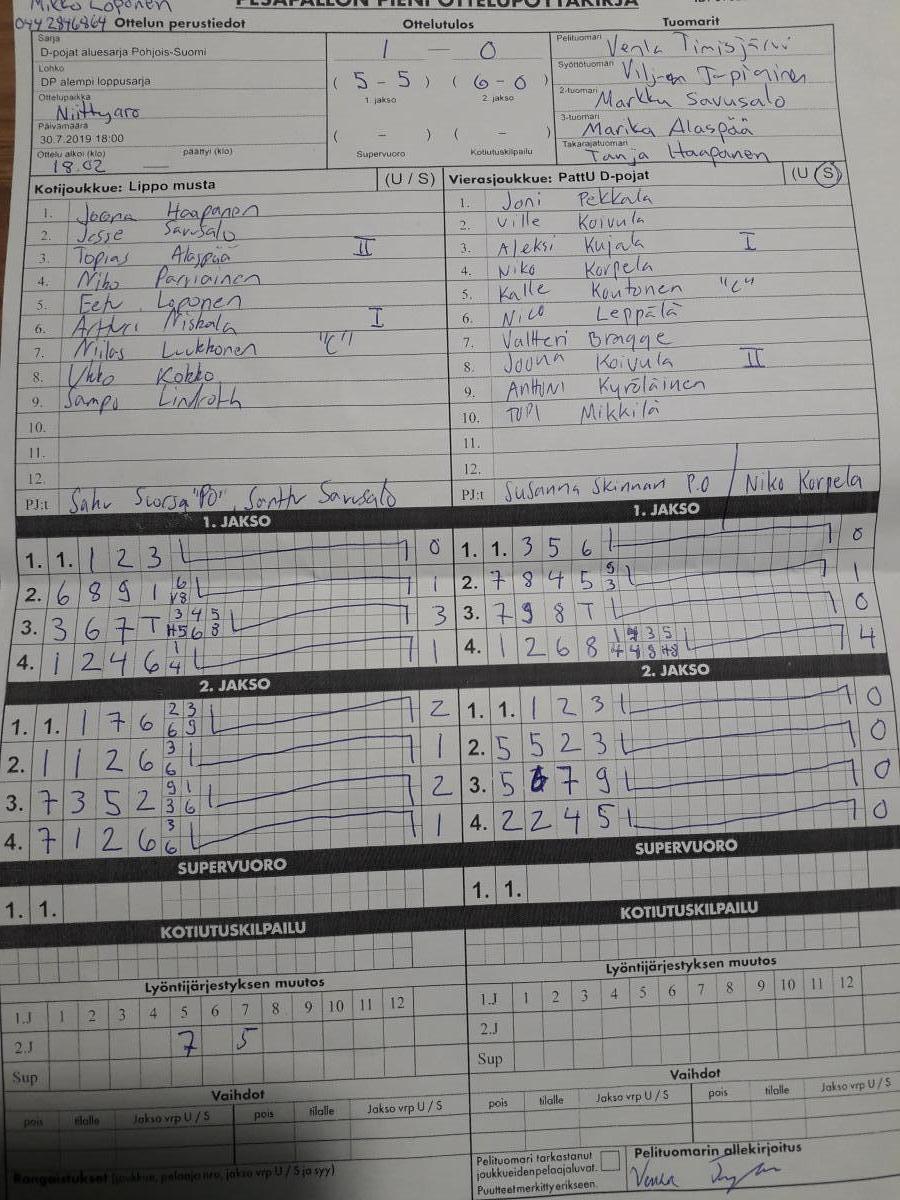 Mikko Loponen
PESÄPALLON PIENI OTTELUPÖYTÄKIRJA
0442846864 Ottelun perustiedot Ottelutulos Tuomarit
Sarja
D-pojat aluesarja Pohjois-Suomi
Lohko
DP alempi loppusarja
Ottelupaikka
Niittyaro
Päivämäärä
30.7.2019 18:00
Ottelu alkoi (klo) päättyi (klo)
18.02 —
1 — 0
( 5 - 5 ) ( 6 - 0 )
1. jakso 2. jakso
( - ) ( - )
Supervuoro Kotiutuskilpailu
Pelituomari Venla Timisjärvi
Syöttötuomari
2-tuomari Markku Savusalo
3-tuomari Marika Alaspää
Takarajatuomari Tanja Haapanen
Kotijoukkue: Lippo musta (U / S)
1. Joona Haapanen
2. Jesse Savusalo
3. Topias Alaspää II
4. Niko Parviainen
5. Eetu Loponen
6. Artturi Niskala I
7. Niilas Luukkonen "C"
8. Ukko Kokko
9. Sampo Lindroth
10.
11.
12.
PJ:t Saku Suorsa "PO", Santtu Savusalo
Vierasjoukkue: PattU D-pojat (U / S)
1. Joni Pekkala
2. Ville Koivula
3. Aleksi Kujala I
4. Niko Korpela
5. Kalle Koutonen "C"
6. Nico Leppälä
7. Valtteri Bragge
8. Joona Koivula II
9. Anttoni Kyröläinen
10. TOPI Mikkilä
11.
12.
PJ:t Susanna Skinnari P.O / Niko Korpela
1. JAKSO
1. 1. 1 2 3 0
2. 6 8 9 1 6 1
3. 3 6 7 T 3 4 5 H5 6 8 3
4. 1 2 4 6 1 4 1
1. JAKSO
1. 1. 3 5 6 0
2. 7 8 4 5 1
3. 7 9 8 T 0
4. 1 2 6 8 4
2. JAKSO
1. 1. 1 7 6 2 3 6 9 2
2. 1 1 2 6 3 6 1
3. 7 3 5 2 9 1 3 6 2
4. 7 1 2 6 3 6 1
2. JAKSO
1. 1. 1 2 3 0
2. 5 5 2 3 0
3. 5 6 7 9 0
4. 2 2 4 5 0
SUPERVUORO
1. 1.
SUPERVUORO
1. 1.
KOTIUTUSKILPAILU
KOTIUTUSKILPAILU
Lyöntijärjestyksen muutos
1.J 1 2 3 4 5 6 7 8 9 10 11 12
2.J 7 5
Sup
Lyöntijärjestyksen muutos
1.J 1 2 3 4 5 6 7 8 9 10 11 12
2.J
Sup
Vaihdot
pois tilalle Jakso vrp U / S pois tilalle Jakso vrp U / S
Vaihdot
pois tilalle Jakso vrp U / S pois tilalle Jakso vrp U / S
Rangaistukset (joukkue, pelaaja nro, jakso vrp U / S ja syy)
Pelituomari tarkastanut
joukkueidenpelaajaluvat.
Puutteet merkitty erikseen.
Pelituomarin allekirjoitus
Venla